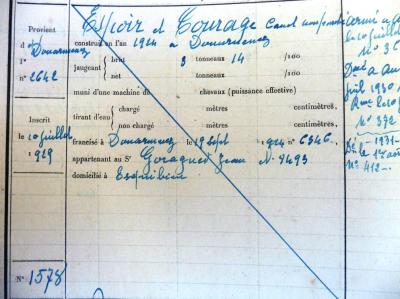 Espoir et Courage Canot non ponté armé à
Provient
d Douarnenez
construit en l'an 1924 à Douarnenez
le 10 juillet
F°
jaugeant
brut 3 tonneaux 14 /100
N° 2642
net tonneaux /100
muni d'une machine de chevaux (puissance effective)
juil 1930
tirant d'eau
chargé mètres centimètres,
non chargé mètres centimètres,
N° 372
Inscrit
le 20 juillet
1929
francisé à Douarnenez le 19 Sept 1924 N° 6346
1931
appartenant au Sr Goraguer Jean N° 9493
N° 412
domicilié à Esquibien
N° 1578